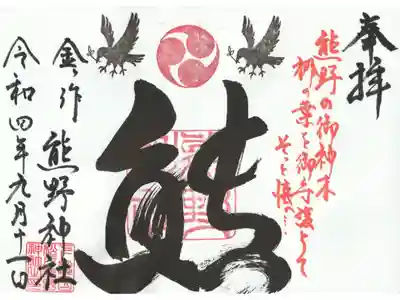 奉拝
熊野の御神木
梛の葉を御守護として
そっと懐
熊
金ヶ作 熊野神社
令和四年九月十一日